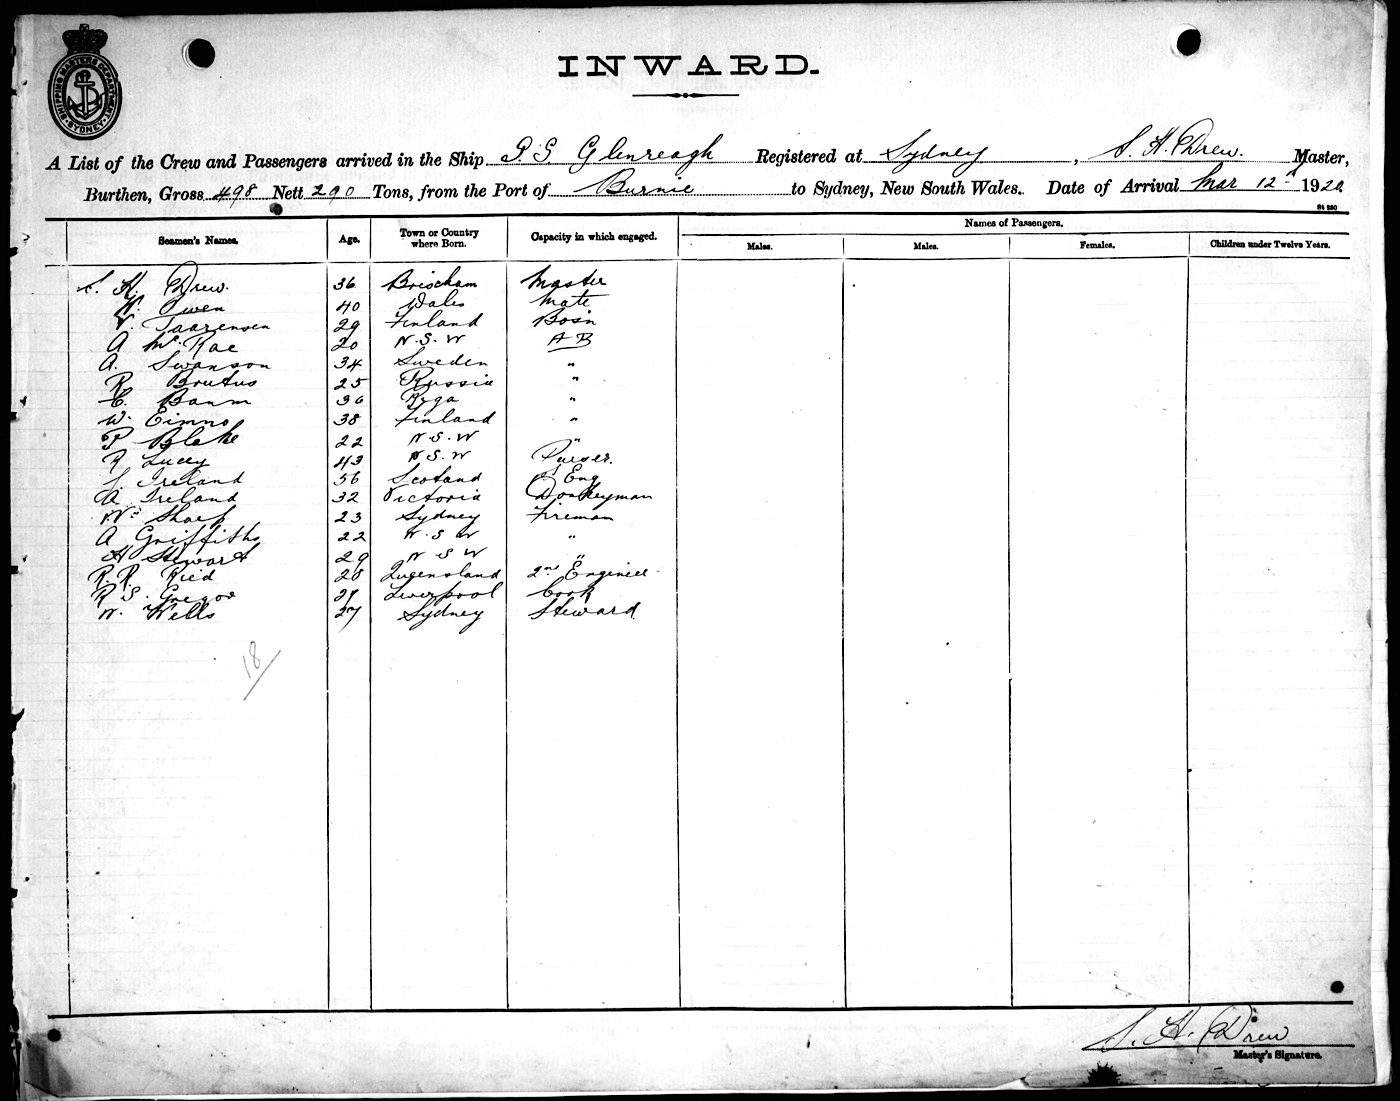 SHIPPING MASTERS DEPARTMENT
SYDNEY
INWARD.
A List of the Crew and Passengers arrived in the Ship S.S. Glenreagh Registered at Sydney, S. H. Drew. Master,
Burthen, Gross 498 Nett 290 Tons, from the Port of Burnie to Sydney, New South Wales. Date of Arrival Mar 12th 1920
St 230
Seamen's Names. Age. Town or Country where Born. Capacity in which engaged. Names of Passengers.
Males. Males. Females. Children under Twelve Years.
S. H. Drew. 36 Brixham Master
W. Owen 40 Wales Mate
V. Taarensen 29 Finland Bosn
A McRae 20 N.S.W A B
A. Swanson 34 Sweden "
R Brutus 25 Russia "
C. Baum 36 Ryga "
W. Eimno 38 Finland "
P Blake 22 N.S.W "
R Lucey 43 N.S.W Purser.
J Ireland 56 Scotand 1 Eng
A Ireland 32 Victoria Donkeyman
Wm Sharp 23 Sydney Fireman
A Griffiths 22 N.S W "
H Stewart 29 N S W "
R. R. Ried 28 Queensland 2nd Engineer
R S. Gregor 27 Liverpool Cook
W. Wells 27 Sydney Steward.
18
S. H. Drew
Master's Signature.